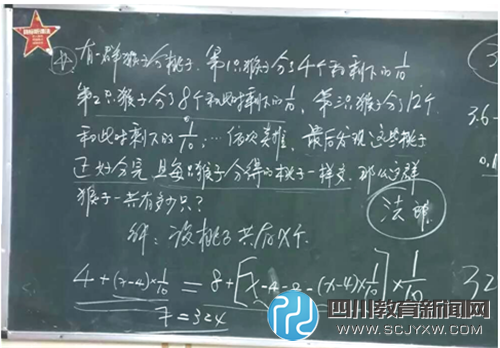 有一群猴子分桃子.第1只猴子分了4个和剩下的1/10
第2只猴子分了8个和此时剩下的1/10, 第三只猴子分12个
和此时剩下的1/10;…依次类推, 最后发现这些桃子
正好分完,且每只猴子分得的桃子一样多.那么这群
猴子一共有多少只?
法
解:设桃子共有x个.
4+(x-4)×1/10=8+[x-4-8-(x-4)×1/10]×1/10
x=324
3.6-
32
四川教育新闻网
WWW.SCJYXW.COM